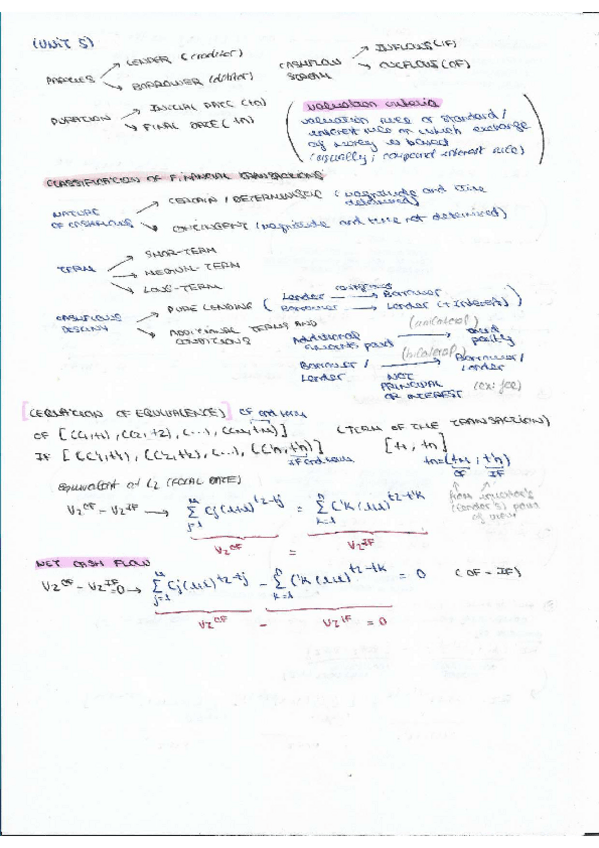 (UNIT 5)
PARTIES → LENDER (creditor)
→ BORROWER (debtor)
CASHFLOW STREAM → INFLOWS (IF)
→ OUTFLOWS (OF)
DURATION → INITIAL DATE (t0)
→ FINAL DATE (tn)
valuation criteria
valuation rule or standard /
interest rule on which exchange
of money is based
(usually; compound interest rule)
CLASSIFICATION OF FINANCIAL TRANSACTIONS
NATURE OF CASHFLOWS → CERTAIN / DETERMINISTIC (magnitude and time determined)
→ CONTINGENT (magnitude and time not determined)
TERM → SHORT-TERM
→ MEDIUM-TERM
→ LONG-TERM
CASHFLOWS DESTINY → PURE LENDING ( Lender → Borrower
Borrower → Lender (+ Interest) )
→ ADDITIONAL TERMS AND CONDITIONS
Additional amounts paid (unilateral) → third party
Borrower / Lender (bilateral) → Borrower / Lender
NOT PRINCIPAL OR INTEREST (ex: fee)
[EQUATION OF EQUIVALENCE] OF and term
OF [(C1,t1), (C2,t2), (...), (Cm,tm)] (TERM OF THE TRANSACTION)
IF [(C'1,t'1), (C'2,t'2), (...), (C'n,t'n)] [t1, tn]
IF and term
tn = (tm ; t'n)
OF IF
from (lender's) point of view
equivalent at tz (FOCAL DATE)
Vz^OF - Vz^IF → Σ j=1 m Cj (1+i)^tz-tj = Σ k=1 n C'k (1+i)^tz-t'k
Vz^OF = Vz^IF
NET CASH FLOW
Vz^OF - Vz^IF = 0 → Σ j=1 m Cj (1+i)^tz-tj - Σ k=1 n C'k (1+i)^tz-t'k = 0 (OF - IF)
Vz^OF - Vz^IF = 0